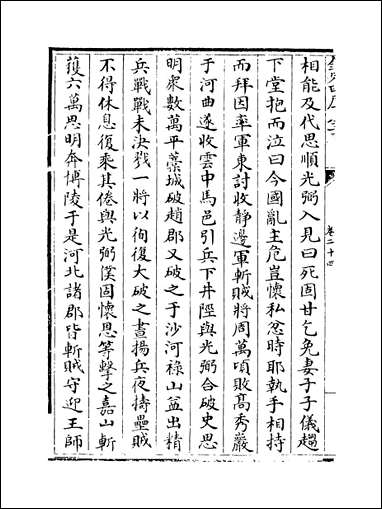 相能及代思順光弼入見曰死固甘乞免妻子子儀趨
下堂抱而泣曰今國亂主危豈懷私忿時耶執手相持
而拜因率軍東討收静邊軍斬賊將周萬頃敗髙秀巖
于河曲遂收雲中馬邑引兵下井陘與光弼合破史思
明衆數萬平藁城破趙郡又破之于沙河禄山益出精
兵戰戰未決戮一將以徇復大破之晝揚兵夜擣壘賊
不得休息復乘其倦與光弼僕固懷思等擊之嘉山斬
獲六萬思明奔博陵于是河北諸郡皆斬賊守迎王師
卷二十四